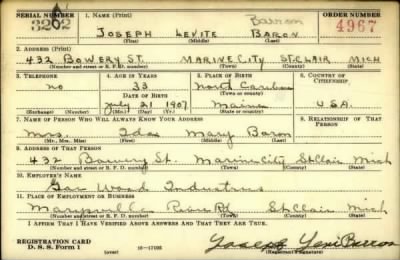 SERIAL NUMBER
1. NAME (Print)
ORDER NUMBER
Barron
4967
JOSEPH LEVITE BARON
(First) (Middle) (Last)
2. ADDRESS (Print)
432 BOWERY ST. MARINE CITY ST. CLAIR MICH
(Number and street or R. F. D. number) (Town) (County) (State)
3. TELEPHONE
4. AGE IN YEARS
5. PLACE OF BIRTH
6. COUNTRY OF CITIZENSHIP
no
33
North Caribou
DATE OF BIRTH
(Town or county)
July 21 1907
Maine
U.S.A.
(Exchange) (Number)
(Mo.) (Day) (Yr.)
(State or country)
7. NAME OF PERSON WHO WILL ALWAYS KNOW YOUR ADDRESS
8. RELATIONSHIP OF THAT PERSON
Mrs. Ida Mary Baron
(Mr., Mrs., Miss) (First) (Middle) (Last)
9. ADDRESS OF THAT PERSON
432 Bowery St. Marine City St Clair Mich
(Number and street or R. F. D. number) (Town) (County) (State)
10. EMPLOYER'S NAME
Gar Wood Industries
11. PLACE OF EMPLOYMENT OR BUSINESS
River Rd St Clair Mich
(Number and street or R. F. D. number) (Town) (County) (State)
I AFFIRM THAT I HAVE VERIFIED ABOVE ANSWERS AND THAT THEY ARE TRUE.
REGISTRATION CARD
D. S. S. Form 1
(over)
16—17105
Joseph Levi Barron
(Registrant's signature)